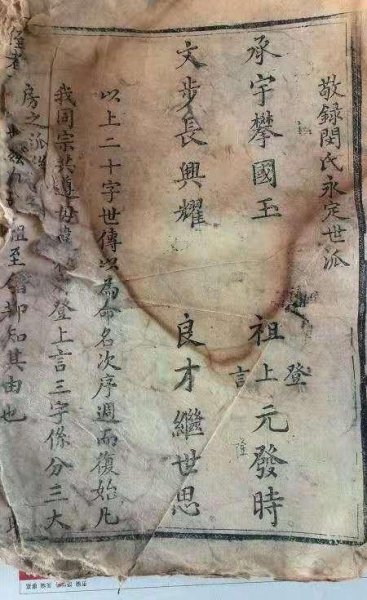 敬録閔氏永定世派
登
承宇攀國玉 祖上元發時
言
文步長興耀 良才繼世思
以上二十字世傳以為命名次序週而復始凡
我同宗共遵 登上言三字係分三大
房之派 祖至 知其由也